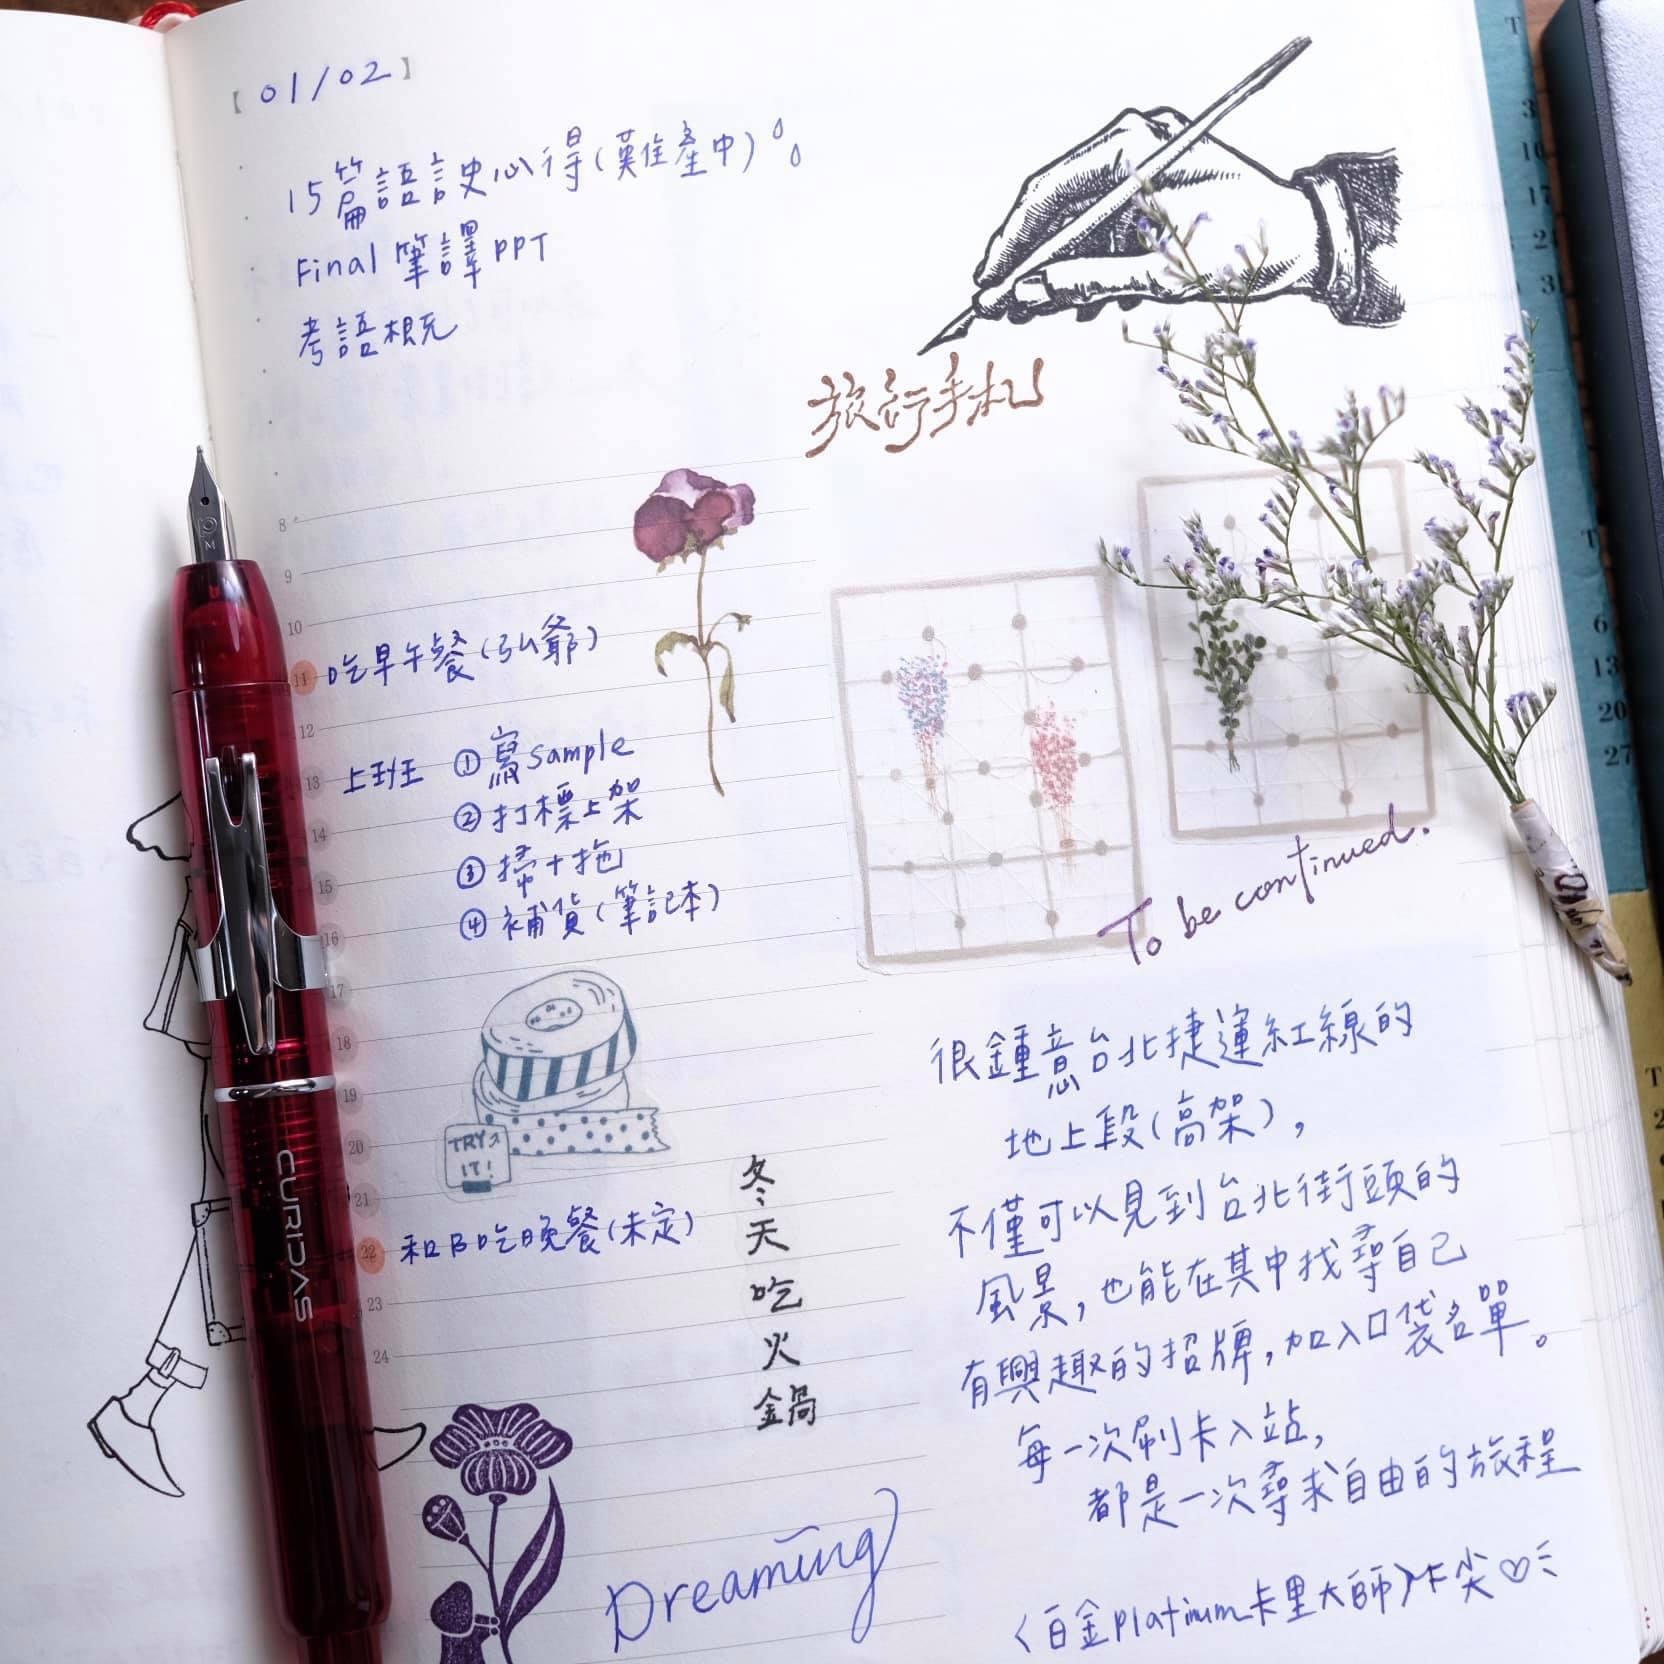 【01/02】
15篇語史心得(難產中)
Final 筆譯PPT
考語概
旅行手札
8
9
10
11 吃早午餐(弘爺)
12
13 上班 ①寫sample
14 ②打標上架
15 ③掃+拖
16 ④補貨(筆記本)
17
18
19
20
21
22 和B吃晚餐(未定)
23
24
TRY
IT!
冬天吃火鍋
Dreaming
To be continued.
很鍾意台北捷運紅線的
地上段(高架),
不僅可以見到台北街頭的
風景,也能在其中找尋自己
有興趣的招牌,加入口袋名單。
每一次刷卡入站,
都是一次尋求自由的旅程
〈白金Platinum卡里大師〉卡尖♡
M
CURIDAS
6
13
20
27